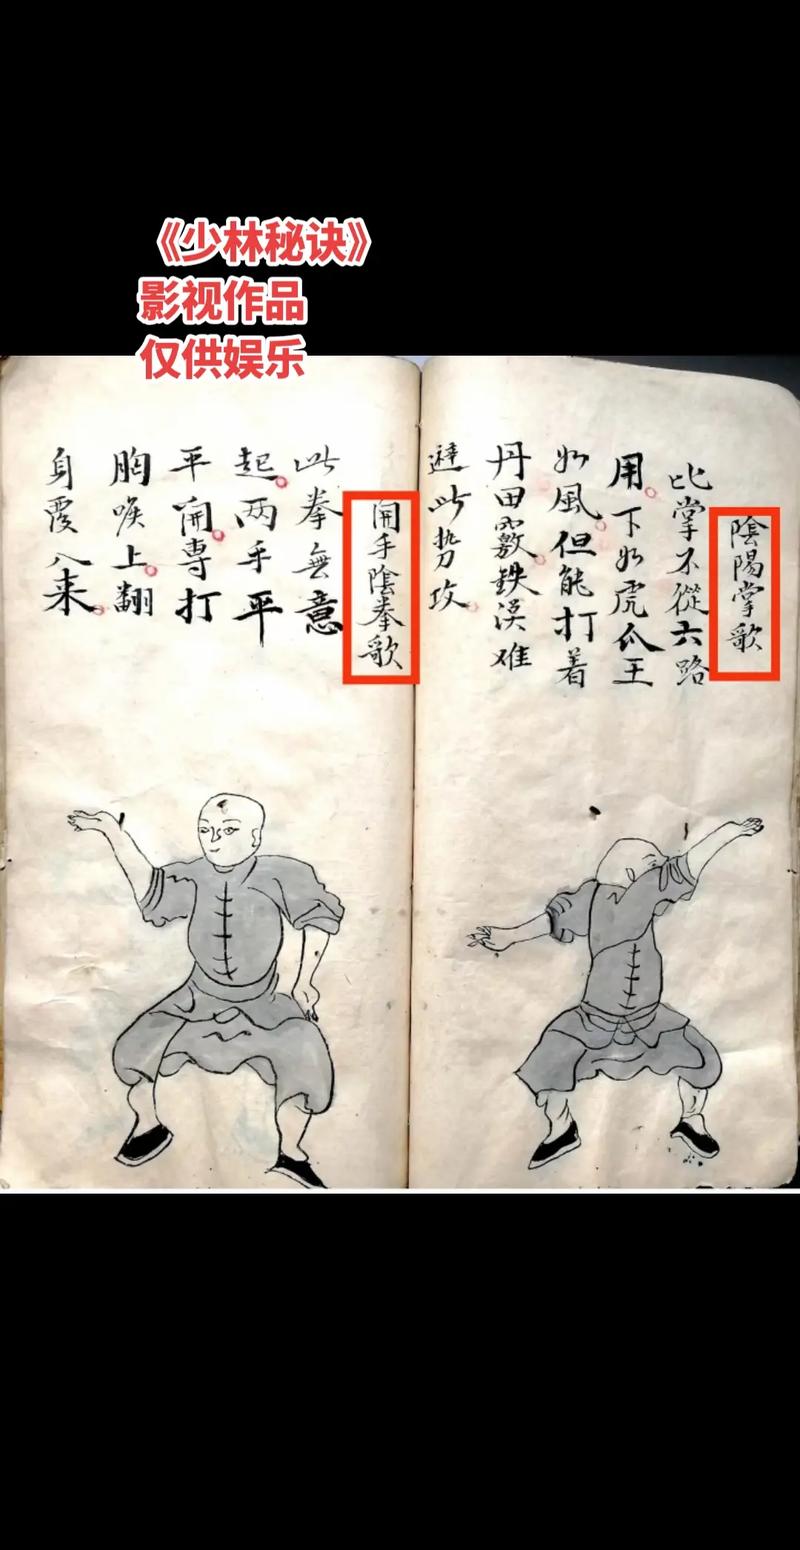 《少林秘诀》
影视作品
仅供娱乐
陰陽掌歌
比掌不從六路
用下如虎爪王
如風但能打着
丹田竅鉄漢难
避此势攻
開手陰拳歌
此拳無意
起两手平
平開専打
胸喉上翻
身覆八来